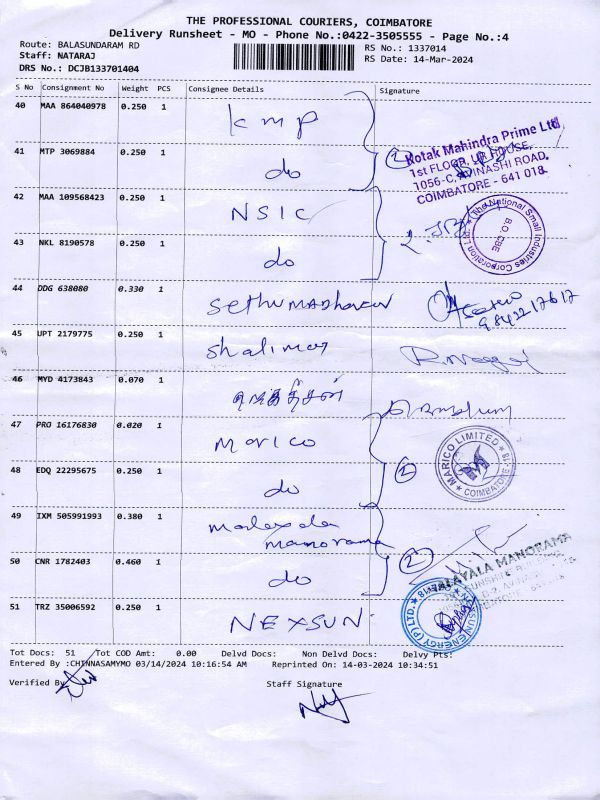 THE PROFESSIONAL COURIERS, COIMBATORE
Delivery Runsheet - MO - Phone No.:0422-3505555 - Page No.:4
Route: BALASUNDARAM RD
RS No.: 1337014
Staff: NATARAJ
RS Date: 14-Mar-2024
DRS No.: DCJB133701404
S No Consignment No Weight PCS Consignee Details Signature
40 MAA 864040978 0.250 1 kmp
41 MTP 3069884 0.250 1 do
2
Kotak Mahindra Prime Ltd
1st FLOOR, UR HOUSE,
1056-C, AVINASHI ROAD,
COIMBATORE - 641 018.
42 MAA 109568423 0.250 1 NSIC
43 NKL 8190578 0.250 1 do
2.
The National Small Industries Corporation Ltd.
B.O. CBE
44 DDG 638080 0.330 1 Sethu MADhavan
9842217617
45 UPT 2179775 0.250 1 Shalimar
46 MYD 4173843 0.070 1
47 PRO 16176830 0.020 1 Marico
48 EDQ 22295675 0.250 1 do
2
MARICO LIMITED
COIMBATORE
49 IXM 505991993 0.380 1 manorama
50 CNR 1782403 0.460 1 do
2
MALAYALA MANORAMA
51 TRZ 35006592 0.250 1 NEXSUN
Tot Docs: 51 Tot COD Amt: 0.00 Delvd Docs: Non Delvd Docs: Delvy Pts:
Entered By :CHINNASAMYMO 03/14/2024 10:16:54 AM Reprinted On: 14-03-2024 10:34:51
Verified By
Staff Signature